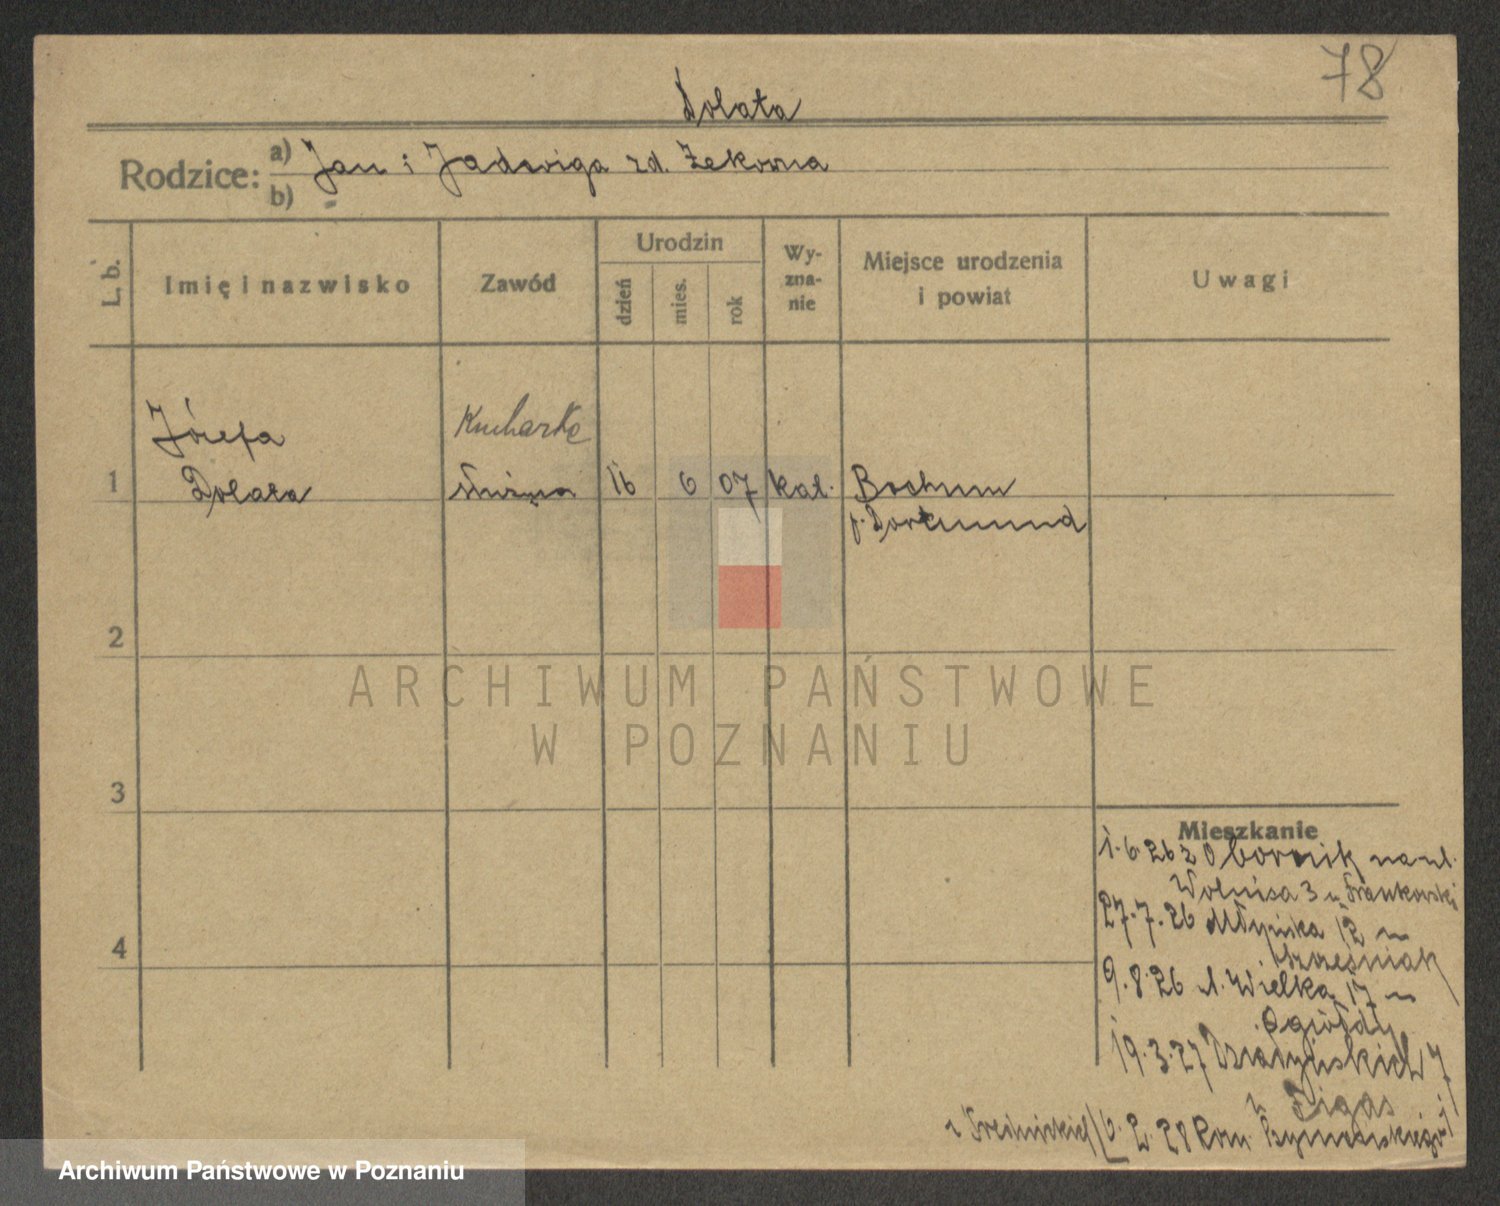 78
Dolata
Rodzice: a) Jan i Jadwiga zd. Żekowna
b)
L. b. Imię i nazwisko Zawód Urodzin dzień mies. rok Wyznanie Miejsce urodzenia i powiat Uwagi
Józefa Kucharka
1 Dolata służąca 16 6 07 kat. Bochum
p. Dortmund
2
ARCHIWUM PAŃSTWOWE
W POZNANIU
3
Mieszkanie
1.6.26 z Obornik na ul.
Wolnica 3 u Frankowski
27.7.26 Młyńska 12 u
4
9.8.26 Wielka 17 u
19.3.27 Działyńskich 7
u Figas
6.2.28 Rom. Szymańskiego
Archiwum Państwowe w Poznaniu